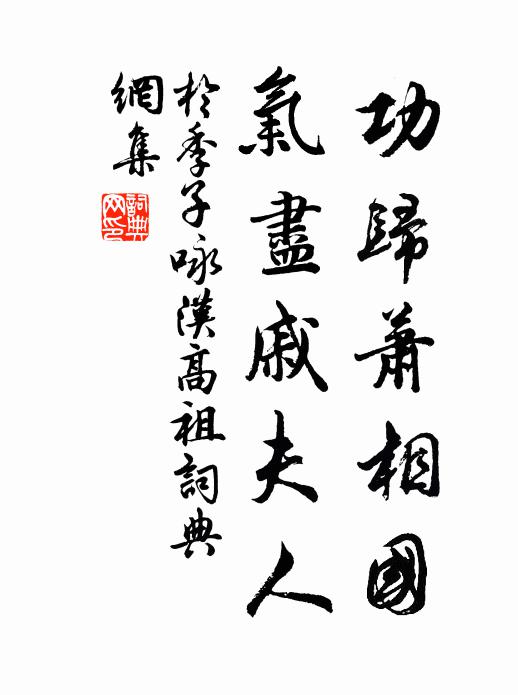 功歸蕭相國
氣盡戚夫人
於季子咏漢高祖詞典
網集
詞典
网印